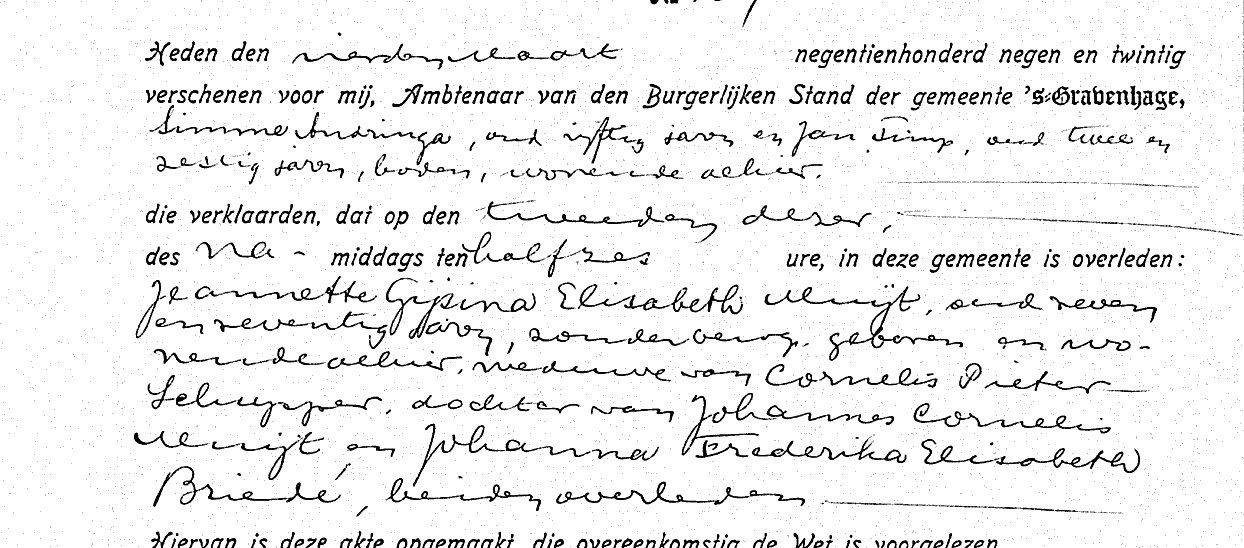 Heden den vierden maart negentienhonderd negen en twintig
verschenen voor mij, Ambtenaar van den Burgerlijken Stand der gemeente 's-Gravenhage,
Simme Andringa, oud vijftig jaren en Jan Timp, oud twee en
zestig jaren, boden, wonende alhier.
die verklaarden, dat op den tweeden dezer,
des na- middags ten half zes ure, in deze gemeente is overleden:
Jeannette Gijsina Elisabeth Muijt, oud zeven
en zeventig jaren, zonder beroep, geboren en wo-
nende alhier, weduwe van Cornelis Pieter
Schupper, dochter van Johannes Cornelis
Muijt en Johanna Frederika Elisabeth
Briedé, beiden overleden
Hiervan is deze akte opgemaakt, die overeenkomstig de Wet is voorgelezen